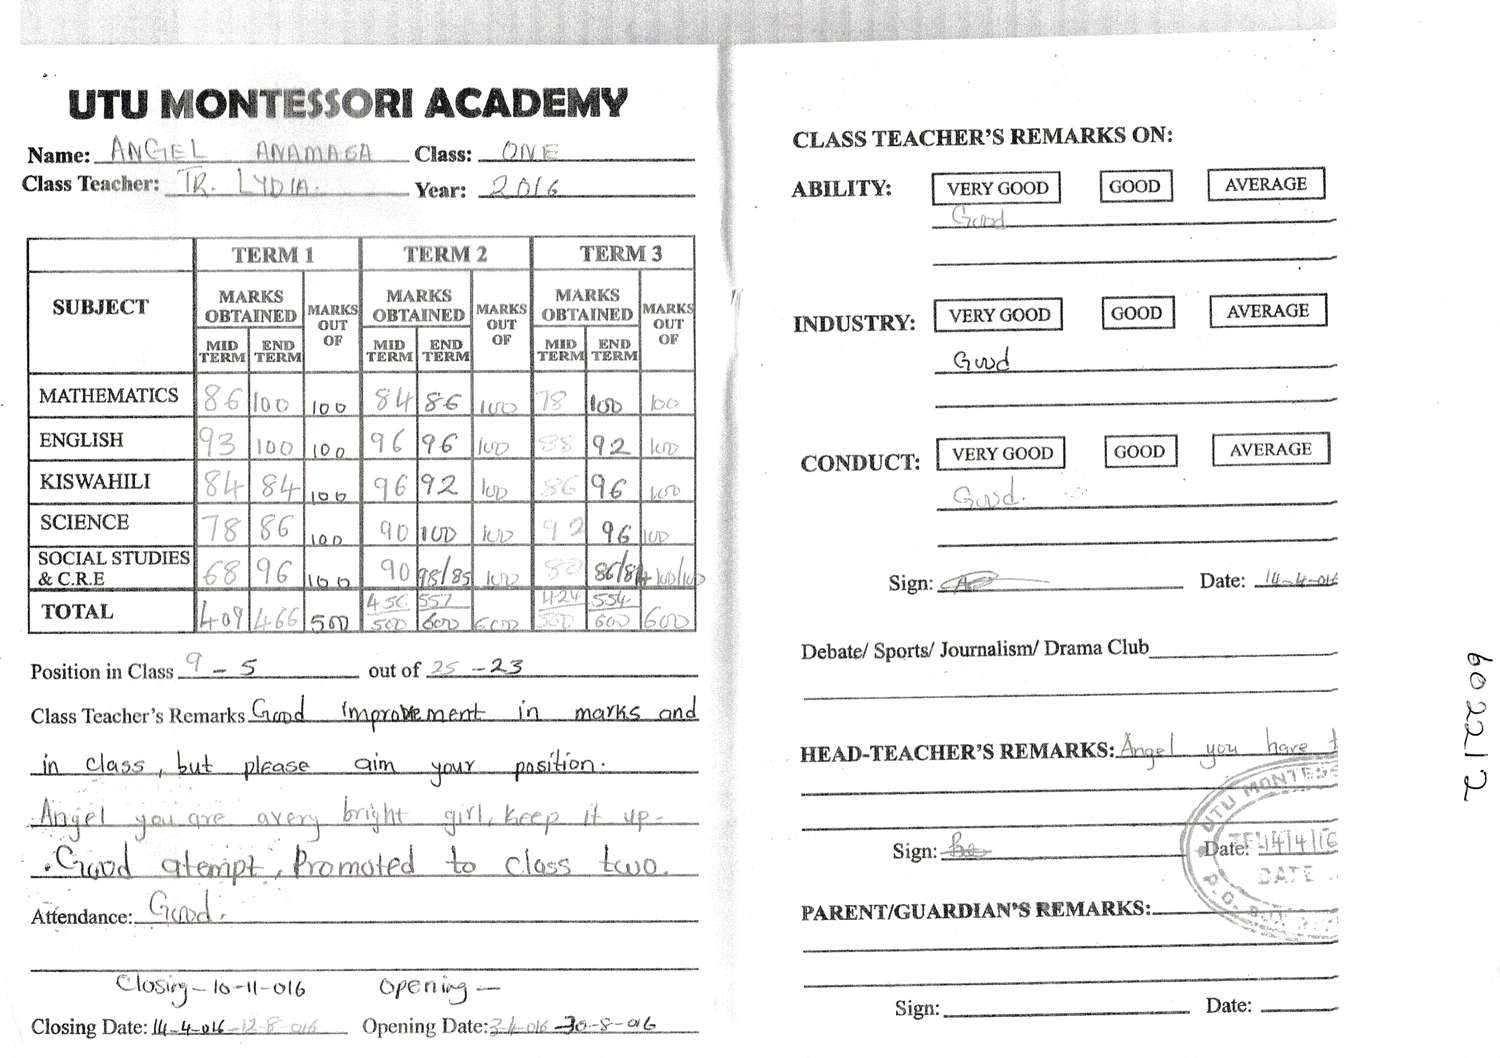 UTU MONTESSORI ACADEMY
Name: ANGEL ANAMASA Class: ONE
Class Teacher: TR. LYDIA. Year: 2016
SUBJECT TERM 1 TERM 2 TERM 3
MARKS OBTAINED MARKS OUT OF MARKS OBTAINED MARKS OUT OF MARKS OBTAINED MARKS OUT OF
MID TERM END TERM MID TERM END TERM MID TERM END TERM
MATHEMATICS 86 100 100 84 86 100 78 100 100
ENGLISH 93 100 100 96 96 100 88 92 100
KISWAHILI 84 84 100 96 92 100 86 96 100
SCIENCE 78 86 100 90 100 100 92 96 100
SOCIAL STUDIES & C.R.E 68 96 100 90 98/85 100 80 86/84 100/100
TOTAL 409 466 500 456/500 557/600 600 424/500 554/600 600
Position in Class 9 - 5 out of 25 - 23
Class Teacher's Remarks Good improvement in marks and
in class, but please aim your position.
Angel you are avery bright girl, keep it up.
Good atempt, Promoted to class two.
Attendance: Good.
Closing - 10-11-016 Opening -
Closing Date: 14-4-016 - 12-8-016 Opening Date: -30-8-016
CLASS TEACHER'S REMARKS ON:
ABILITY: VERY GOOD GOOD AVERAGE
Good
INDUSTRY: VERY GOOD GOOD AVERAGE
Good
CONDUCT: VERY GOOD GOOD AVERAGE
Good.
Sign: Date: 14-4-016
Debate/ Sports/ Journalism/ Drama Club
HEAD-TEACHER'S REMARKS: Angel you have
UTU MONTESS
Sign: Date: 14/4/16
DATE
P.O. B
PARENT/GUARDIAN'S REMARKS:
Sign: Date:
602212